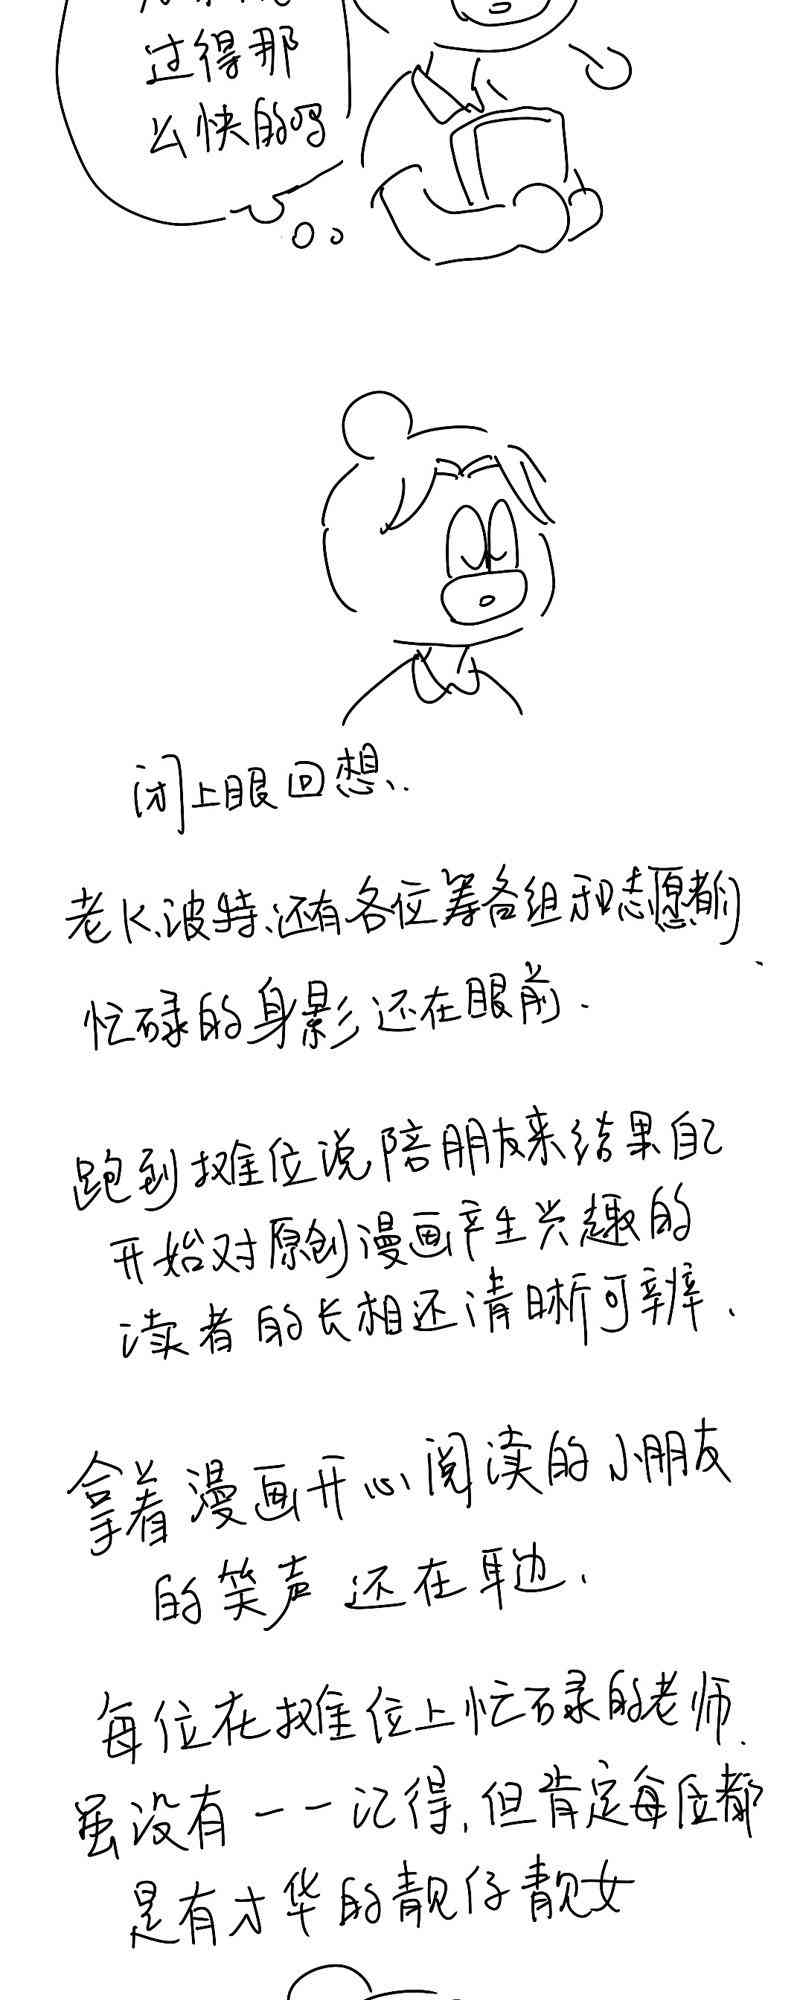 过得那
么快的吗
闭上眼回想、
老K、波特、还有各位筹备组和志愿者们
忙碌的身影还在眼前.
跑到摊位说陪朋友来结果自己
开始对原创漫画产生兴趣的
读者的长相还清晰可辨.
拿着漫画开心阅读的小朋友
的笑声还在耳边.
每位在摊位上忙碌的老师.
虽没有一一记得,但肯定每位都
是有才华的靓仔靓女